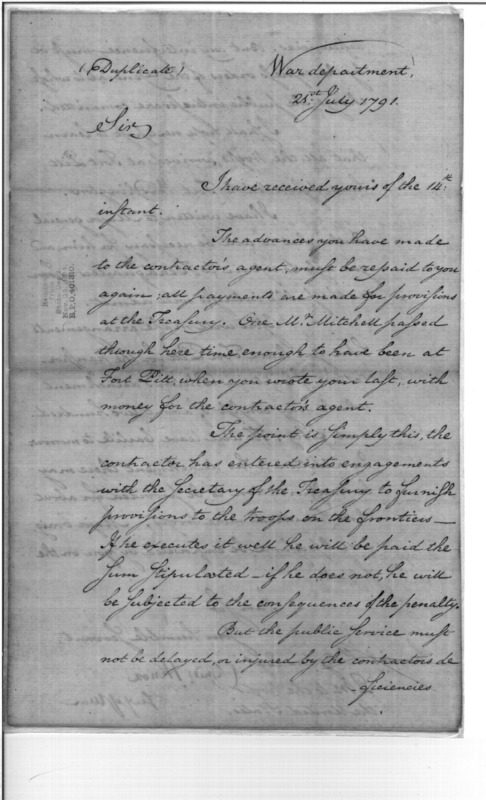 (Duplicate)
War department,
21st July 1791.
Sir,
I have received yours of the 14th.
instant.
The advances you have made
to the contractor's agent, must be repaid to you
again; all payments are made for provisions
at the Treasury. One Mr. Mitchell passed
though here time enough to have been at
Fort Pitt, when you wrote your last, with
money for the contractor's agent.
The point is simply this, the
contractor has entered into engagements
with the Secretary of the Treasury to furnish
provisions to the troops on the frontiers—
If he executes it well he will be paid the
Sum Stipulated—if he does not, he will
be subjected to the consequences of the penalty.
But the public service must
not be delayed, or injured by the contractors de
ficiencies